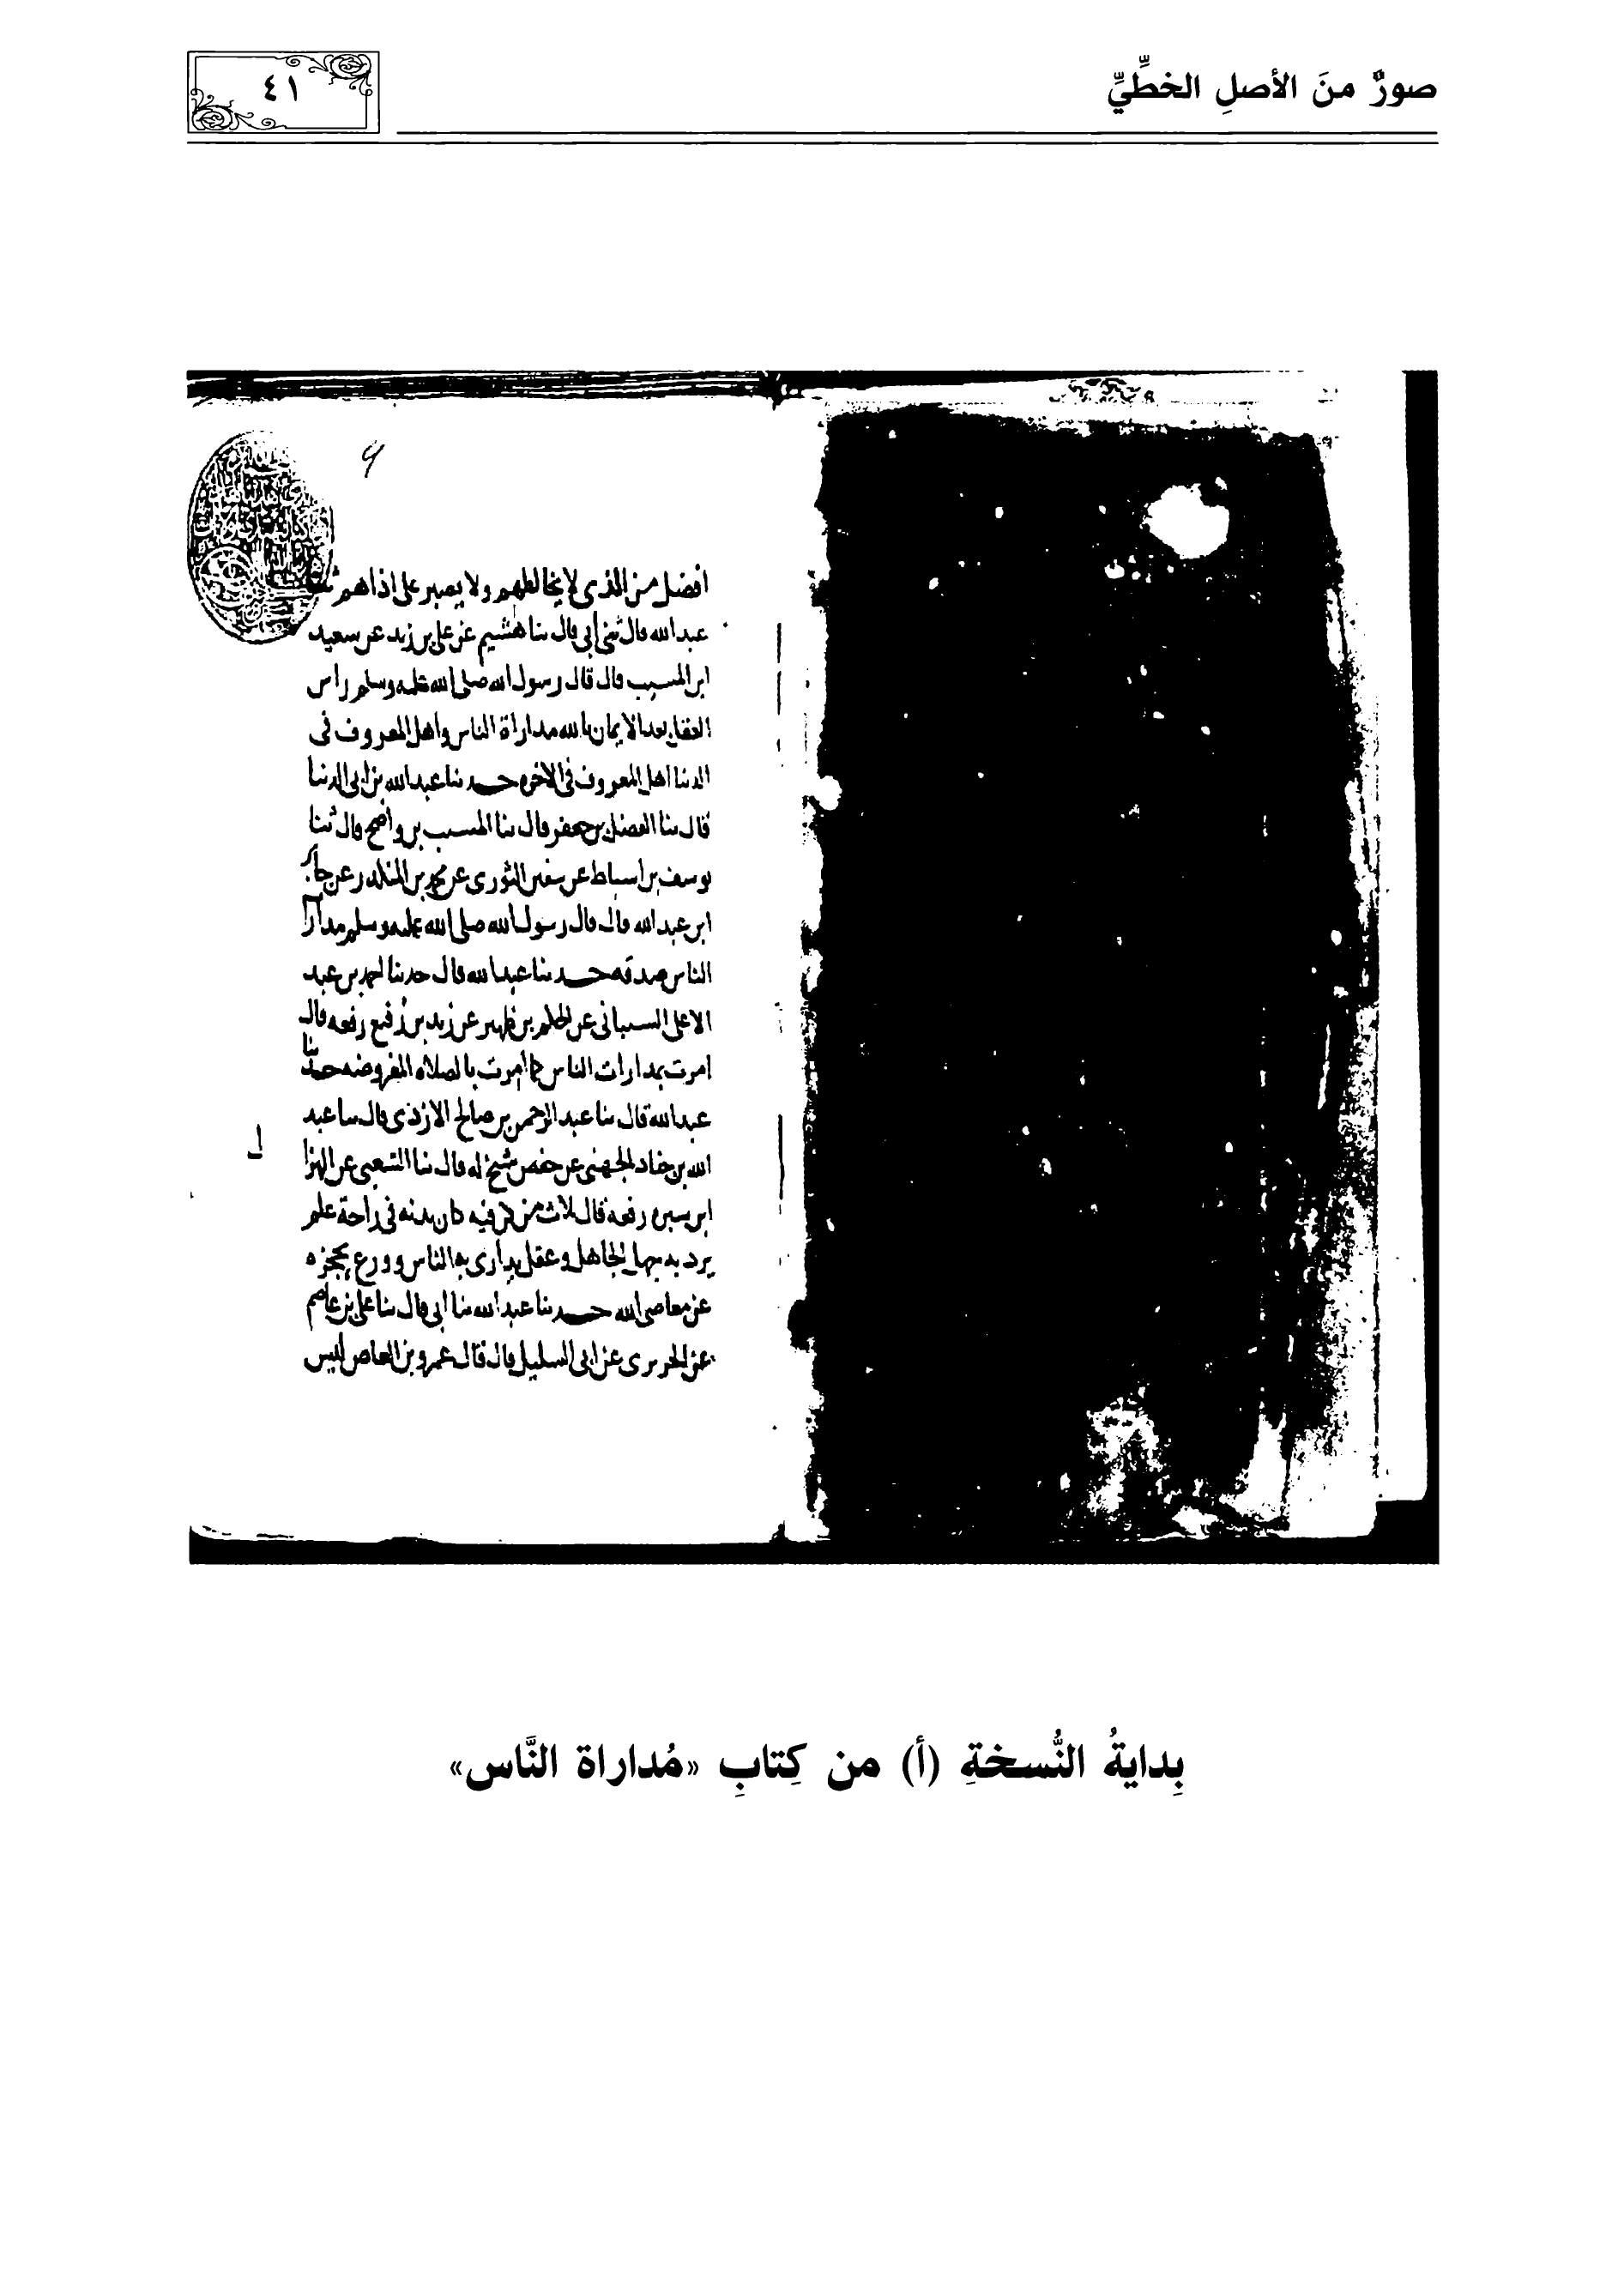 صورٌ منَ الأصلِ الخطِّيِّ
٤١
افضل من الذى لا يخالطهم ولا يصبر على اذاهم ثنا
عبد الله قال ثنى أبى قال ثنا هشيم عن على بن زيد عن سعيد
ابن المسيب قال قال رسول الله صلى الله عليه وسلم راس
العقل بعد الايمان بالله مداراة الناس واهل المعروف فى
الدنيا اهل المعروف فى الاخره حدثنا عبد الله بن ابى الدنيا
قال ثنا الفضل بن جعفر قال ثنا المسيب بن واضح قال ثنا
يوسف بن اسباط عن سفين الثورى عن محمد بن المنكدر عن جابر
ابن عبد الله قال قال رسول الله صلى الله عليه وسلم مداراة
الناس صدقه حدثنا عبد الله قال حدثنا احمد بن عبد
الاعلى الشيبانى عن الحكم بن ظهير عن زيد بن رفيع رفعه قال
امرت بمدارات الناس كما أمرت بالصلاه المفروضه حدثنا
عبد الله قال ثنا عبد الرحمن بن صالح الازدى قال ثنا عبد
الله بن الجهنى عن حفص شيخ له قال ثنا الشعبى عن النزال
ابن سبره رفعه قال ثلاث من كن فيه كان بدنه فى راحة علم
يرد به جهل الجاهل وعقل يدارى به الناس وورع يحجزه
عن معاصى الله حدثنا عبد الله ثنا ابى قال ثنا على بن عاصم
عن الجريرى عن ابى السليل قال قال عمرو بن العاص ليس
بِدايةُ النُّسخةِ (أ) من كِتابِ «مُداراة النَّاس»